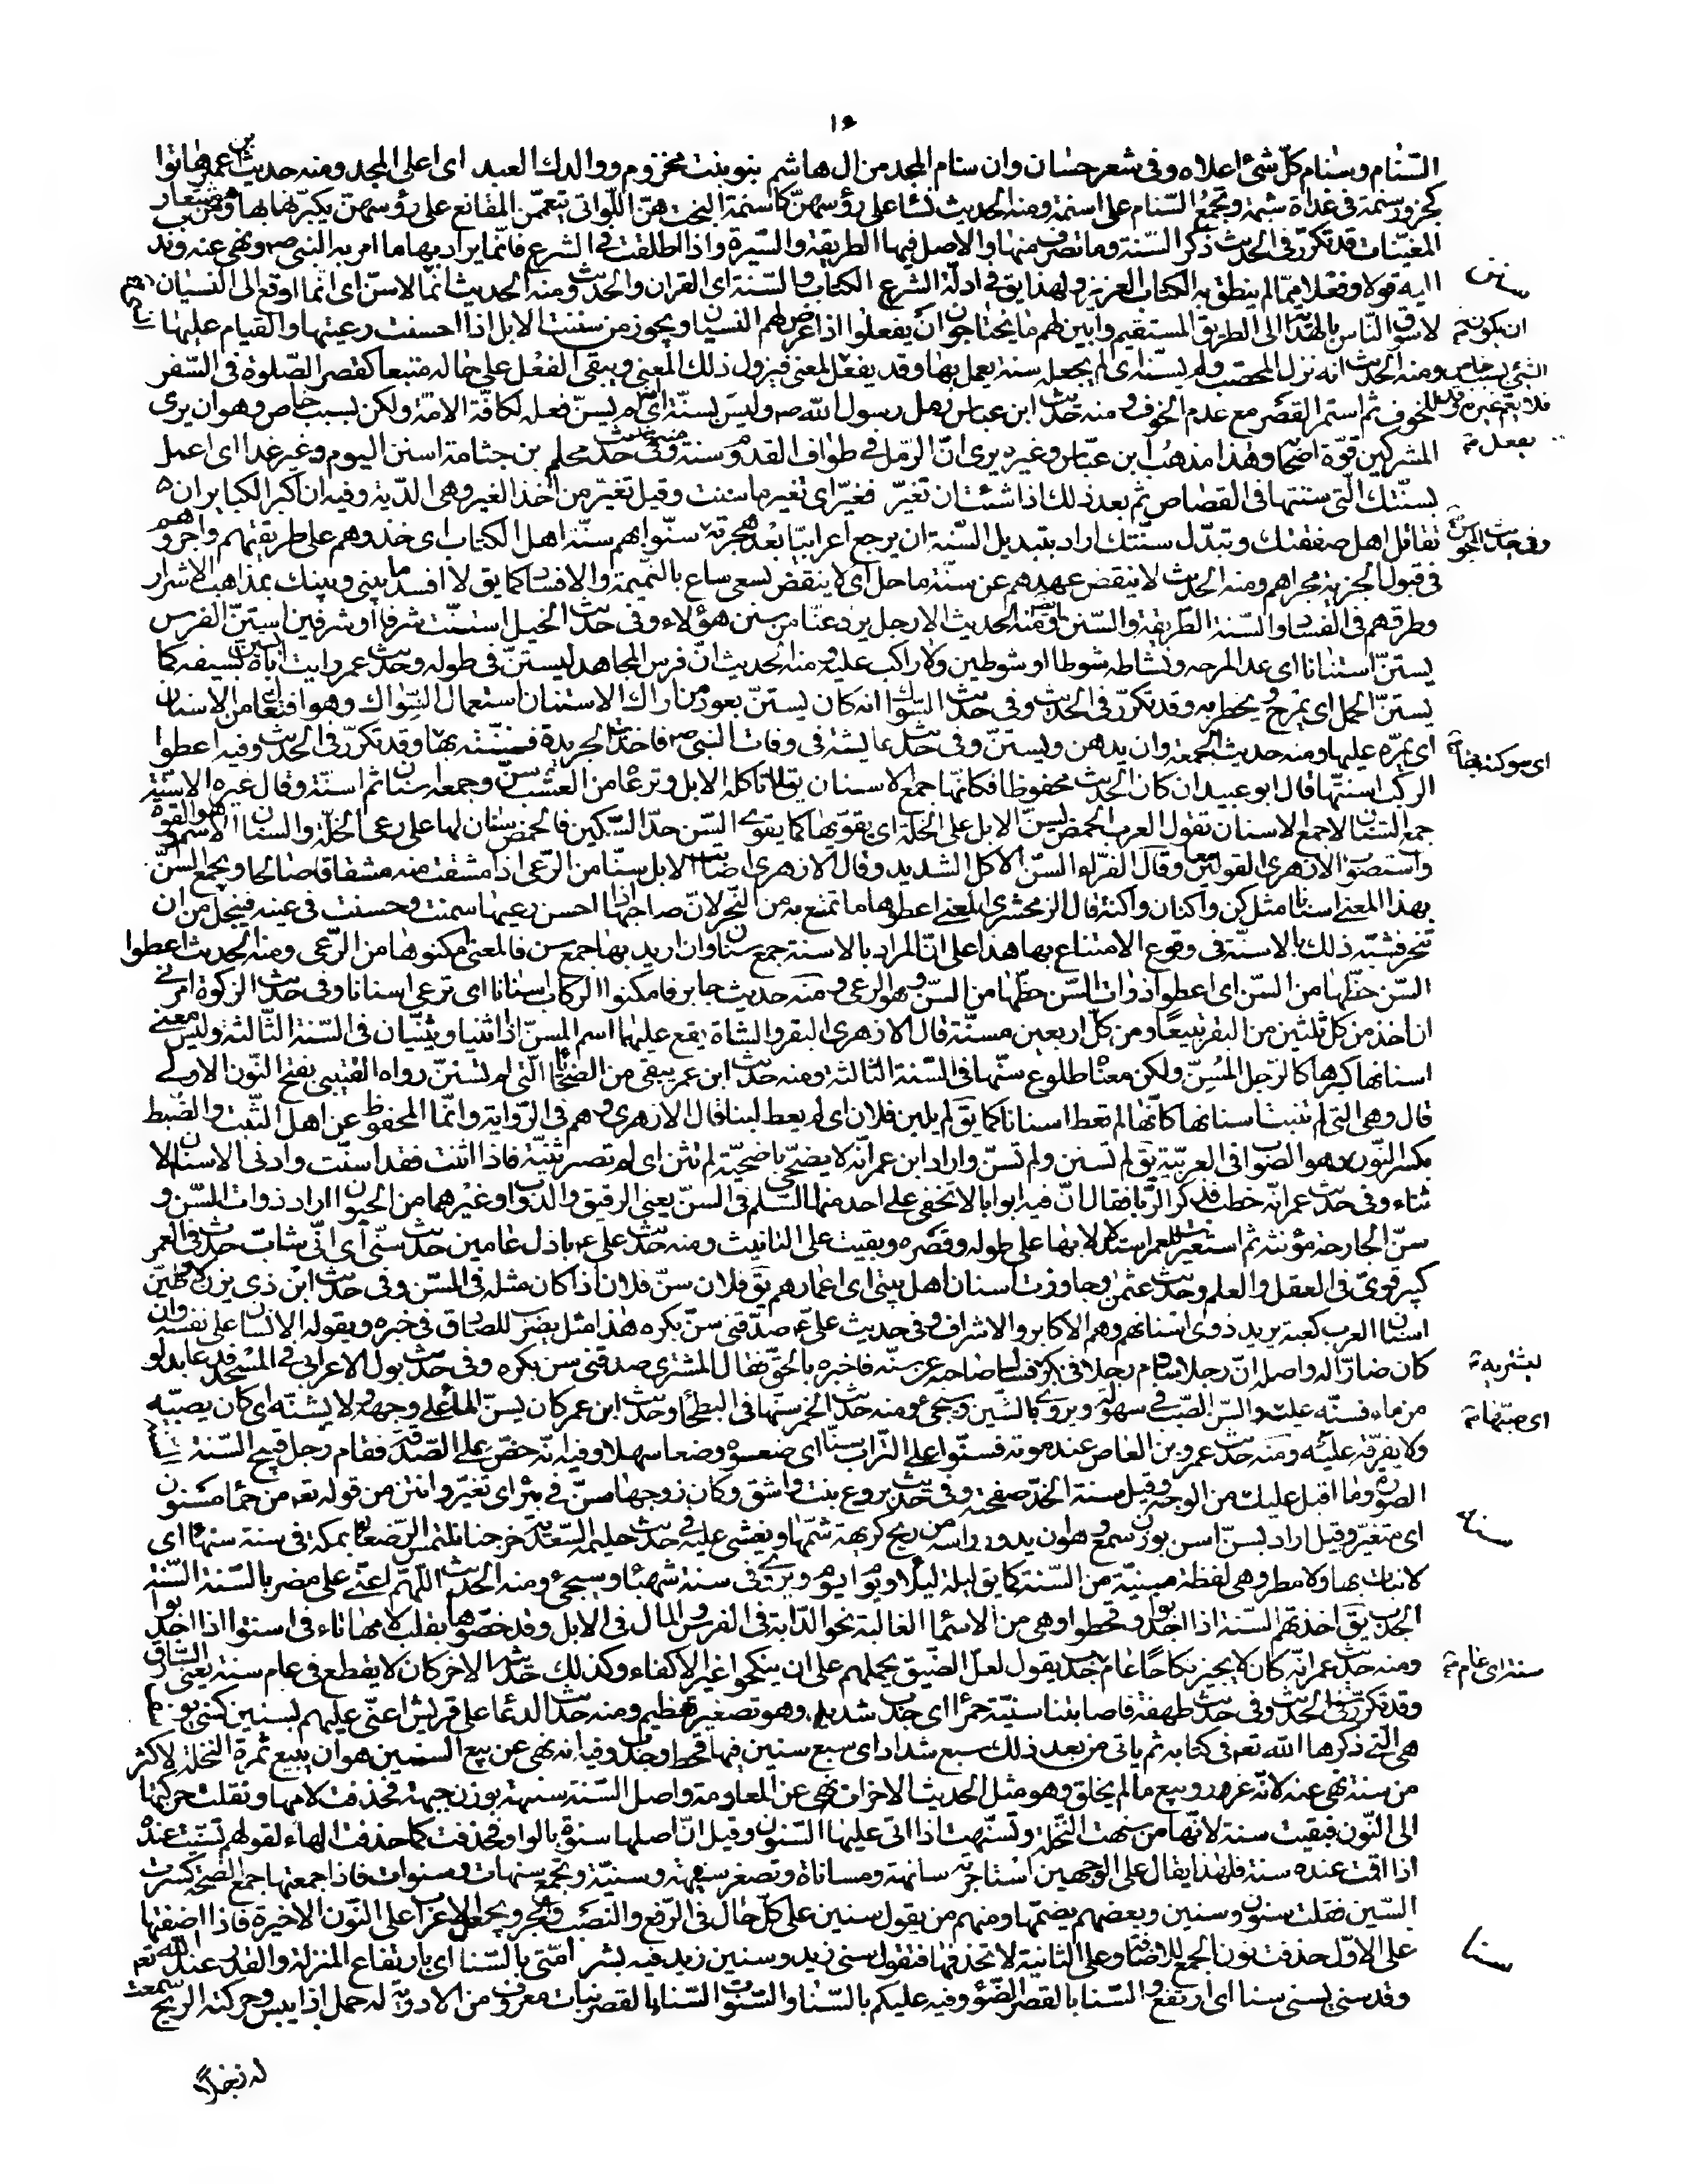 ١٥
السّنام وسنام كلّ شئ اعلاه وفى شعر حسّان وان سنام المجد من ال هاشم بنو بنت مخزوم ووالدك العبد اى اعلى المجد ومنه حديث بن عمير هاتوا
كجزور سنمة فى غداة شبمة وتجمع السّنام على اسنمة ومنه الحديث نساء على رؤسهنّ كاسنمة البخت هنّ اللّواتى يتعمّمن المقانع على رؤسهنّ يكبّرنها بها وهو من شعار
المغنّيات قد تكرّر فى الحديث ذكر السّنة وما تصرف منها والاصل فيها الطريقة والسّيرة واذا اطلقت فى الشرع فانّما يراد بها ما امر به النبى ص ونهى عنه وندب
سنن
اليه قولا وفعلا ممّا لم ينطق به الكتاب العزيز ولهذا يق فى ادلّة الشرع الكتاب والسّنة اى القران والحديث ومنه الحديث انّما لاسنّ اى انّما اوقع الى النسيان
لاسوق النّاس بالهداية الى الطريق المستقيم وابيّن لهم ما يحتاجون ان يفعلوا اذا عرض لهم النسيان ويجوز من سننت الابل اذا احسنت رعيتها والقيام عليها
ومنه الحديث انه نزل المحصب ولم يسنّه اى لم يجعله سنة يعمل بها وقد يفعل المعنى فيزول ذلك المعنى ويبقى الفعل على حاله متبعا كقصر الصّلوة فى السّفر
للخوف ثم استمر القصر مع عدم الخوف ومنه حديث ابن عباس رمل رسول الله ص وليس بسنّة اى لم يسنّ فعله لكافّة الامّة ولكن بسبب خاص وهو ان يرى
المشركين قوّة اصحابه وهذا مذهب ابن عبّاس وغيره يرى انّ الرّمل فى طواف القدوم سنة وفى حديث محلم بن جثامة اسنن اليوم وغير غدا اى اعمل
بسنّتك الّتى سننتها فى القصاص ثم بعد ذلك اذا شئت ان تغيّر فغيّر اى تغير ما سننت وقيل تغيّر من اخذ الغير وهى الدّية وفيه ان اكبر الكبائر ان
تقاتل اهل صفقتك وتبدّل سنّتك اراد بتبديل السّنة ان يرجع اعرابيّا بعد هجرته سنّوا بهم سنّة اهل الكتاب اى خذوهم على طريقتهم واجروهم
فى قبول الجزية مجراهم ومنه الحديث لا ينقض عهدهم عن سنّة ماحل اى لا ينقض بسعى ساع بالنّميمة والافساد كما يق لا افسد ما بينى وبينك بمذاهب الاشرار
وطرقهم فى الفساد والسّنة الطّريقة والسّنن ايضا ومنه الحديث الا رجل يردّ عنّا من سنن هؤلاء وفى حديث الخيل استنّت شرفا او شرفين استنّ الفرس
يستنّ استنانا اى عدا لمرحه ونشاطه شوطا او شوطين ولا راكب عليه ومنه الحديث انّ فرس المجاهد ليستنّ فى طوله وحديث عمر رايت اباه يستنّ بسيفه كما
يستنّ الجمل اى يمرح ويخطر به وقد تكرّر فى الحديث وفى حديث السّواك انه كان يستنّ بعود من اراك الاستنان استعمال السّواك وهو افتعال من الاسنان
اى يمرّه عليها ومنه حديث الجمعة وان يدهن ويستنّ وفى حديث عايشة فى وفات النبى ص فاخذت الجريدة فسننته بها وقد تكرّر فى الحديث وفيه اعطوا
الركب اسنتها قال ابو عبيد ان كان الحديث محفوظا فكانّها جمع الاسنان يق لما تاكله الابل وترعاه من العشب سنّ وجمعه اسنان ثم اسنّة وقال غيره الاسنّة
جمع السّنان لا جمع الاسنان تقول العرب الحمض يسنّ الابل على الخلّة اى يقوّيها كما يقوى السّن حدّ السّكين فالحمض سنان لها على رعى الخلّة والسنان الاسم وهو القوّة
واستصوب الازهرى القولين معا وقال الفرّاء السّنّ الاكل الشديد وقال الازهرى اصابت الابل سنّا من الرّعى اذا مشقت منه مشقا صالحا ويجمع السّنّ
بهذا المعنى اسنانا مثل كن واكنان واكنة قال الزمخشرى المعنى اعطوها ما تمتنع به من النّحر لانّ صاحبها اذا احسن رعيها سمنت وحسنت فى عينه فيبخل من ان
تنحر فشبّه ذلك بالاسنّة فى وقوع الامتناع بها هذا على انّ المراد بالاسنة جمع سنان وان اريد بها جمع سن فالمعنى امكنوها من الرّعى ومنه الحديث اعطوا
السّن حظّها من السّن اى اعطوا ذوات السّن حظّها من السّن وهو الرعى ومنه حديث جابر فامكنوا الركاب اسنانا اى ترعى اسنانا وفى حديث الزكوة امرنى
ان اخذ من كل ثلثين من البقر تبيعا ومن كلّ اربعين مسنّة قال الازهرى البقر والشاة يقع عليهما اسم المسنّ اذا اثنيا ويثنّيان فى السّنة الثّالثة وليس معنى
اسنانها كبرها كالرّجل المسنّ ولكن معناه طلوع سنّها فى السّنة الثالثة ومنه حديث ابن عمر يبقى من الضحايا الّتى لم تسنن رواه القتيبى بفتح النّون الاولى
قال وهى التى لم تنبت اسنانها كانّها لم تعط اسنانا كما يق لم يلبن فلان اى لم يعط لبنا قال الازهرى وهم فى الرّواية وانّما المحفوظ عن اهل الثّبت والضّبط
بكسر النّون وهو الصّواب فى العربيّة يق لم تسنن ولم تسنّ واراد ابن عمر انّه لا يضحّى باضحيّة لم تثن اى لم تصر ثنيّة فاذا اثنت فقد اسنّت وادنى الاسنان الا
ثناء وفى حديث عمر انّه خطب فذكر الرّبا فقال انّ فيه ابوابا لا تخفى على احد منها السّلم فى السنّ يعنى الرقيق والدّواب وغيرهما من الحيوان اراد ذوات السّن و
سنّ الجارحة مؤنثة ثم استعيرت للعمر استدلالا بها على طوله وقصره وبقيت على التانيث ومنه حديث على ع باذل عامين حديث سنّى اى انّى شابّ حديث فى العمر
كبير قوىّ فى العقل والعلم وحديث عثمن وجاوزت اسنان اهل بيتى اى اعمارهم يق فلان سنّ فلان اذا كان مثله فى السّن وفى حديث ابن ذى يزن لاوطئنّ
اسنان العرب كعبة يريد ذوى اسنانهم وهم الاكابر والاشراف وفى حديث علىّ ع صدّقنى سنّ بكره هذا مثل يضرب للصّادق فى خبره ويقوله الانسان على نفسه وان
كان ضارّا له واصله انّ رجلا ساوم رجلا فى بكر فسال صاحبه عن سنّه فاخبره بالحقّ فقال المشترى صدقنى سن بكره وفى حديث بول الاعرابى فى المسجد فدعا بدلو
من ماء فسنّه عليه والسّن الصّب فى سهولة ويروى بالشّين وسيجئ ومنه حديث الخمر سنّها فى البطحاء وحديث ابن عمر كان يسنّ الماء على وجهه ولا يشنّه اى كان يصبّه
ولا يفرّقه عليه ومنه حديث عمرو بن العاص عند موته فسنّوا علىّ التّراب سنّا اى ضعوه وضعا سهلا وفيه انّه حضّ على الصّدقة فقام رجل قبيح السّنة
الصّورة وما اقبل عليك من الوجه وقيل سنة الخدّ صفحته وفى حديث بروع بنت واشق وكان زوجها سنّ فى بئر اى تغيّر وانتن من قوله تعم من حمأ مسنون
سنه
اى متغيّر وقيل اراد بسنّ اسن بوزن سمع وهو ان يدور راسه من ريح كريهة شمّها ويغشى عليه فى حديث حليمة السّعديّة خرجنا نلتمس الرّضعاء بمكة فى سنة سنهاء اى
لا نبات بها ولا مطر وهى لفظة مبنيّة من السّنة كما يق ليلة ليلاء ويوم ايوم ويرى فى سنة شهباء وسيجئ ومنه الحديث اللّهمّ اعنّى على مضر بالسّنة السّنة
الجدب يق اخذتهم السّنة اذا اجدبوا وقحطوا وهى من الاسماء الغالبة نحو الدّابة فى الفرس والمال فى الابل وقد خصّوها بقلب لامها تاء فى اسنتوا اذا اجدبوا
ومنه حديث عمر انّه كان لا يجيز نكاحا عام جدب يقول لعلّ الضّيق يحملهم على ان ينكحوا غير الاكفاء وكذلك حديثه الاخر كان لا يقطع فى عام سنة يعنى السّارق
سنة اى عام
وقد تكرّر فى الحديث وفى حديث طهفة فاصابتنا سنيّة حمراء اى جدب شديد وهو تصغير تعظيم ومنه حديث الدعاء على قريش اعنّى عليهم بسنين كسنى يوسف
هى التى ذكرها الله تعم فى كتابه ثم ياتى من بعد ذلك سبع شداد اى سبع سنين فيها قحط وجدب وفيه انه نهى عن بيع السنين هو ان يبيع ثمرة النخلة لاكثر
من سنة نهى عنه لانّه غرور وبيع ما لم يخلق وهو مثل الحديث الاخر انه نهى عن المعاومة واصل السّنة سنهة بوزن جبهة فحذفت لامها ونقلت حركتها
الى النّون فبقيت سنة لانّها من سنهت النّخلة وتسنّهت اذا اتى عليها السّنون وقيل انّ اصلها سنوة بالواو فحذفت كما حذفت الهاء لقولهم تسنّيت عنده
اذا اقمت عنده سنة فلهذا يقال على الوجهين استاجرته سانهة ومساناة وتصغر سنيهة وسنيّة وتجمع سنهات وسنوات فاذا جمعتها جمع الصّحة كسرت
السّين فقلت سنون وسنين وبعضهم يضمّها ومنهم من يقول سنين على كلّ حال فى الرّفع والنّصب والجر ويجعل الاعراب على النّون الاخيرة فاذا اضفتها
على الاوّل حذفت نون الجمع للاضافة وعلى الثانية لا تحذفها فتقول سنى زيد وسنين زيد فيه بشر امّتى بالسّنا اى بارتفاع المنزلة والقدر عند الله تعم
سنا
وقد سنى يسنى سنا اى ارتفع والسّنا بالقصر الضّوؤ وفيه عليكم بالسّنا والسّنّوت السّنا بالقصر نبات معروف من الادوية له حمل اذا يبس وحركته الريح سمعت
له زجلا